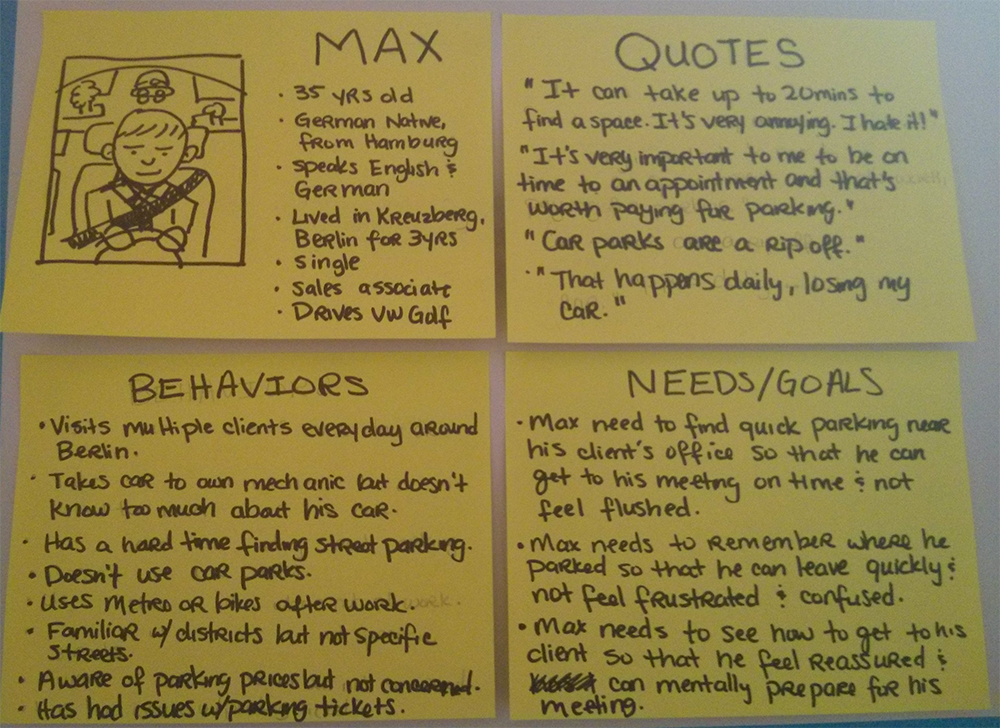 MAX
• 35 YRS old
• German Native,
from Hamburg
• Speaks English &
German
• Lived in Kreuzberg,
Berlin for 3YRS
• Single
• Sales associate
• Drives VW Golf
QUOTES
"It can take up to 20mins to
find a space. It's very annoying. I hate it!"
"It's very important to me to be on
time to an appointment and that's
worth paying for parking."
"Car parks are a rip off."
"That happens daily, losing my
car."
BEHAVIORS
• Visits multiple clients everyday around
Berlin.
• Takes car to own mechanic but doesn't
know too much about his car.
• Has a hard time finding street parking.
• Doesn't use car parks.
• Uses Metro or bikes after work.
• Familiar w/ districts but not specific
streets.
• Aware of parking prices but not concerned.
• Has had issues w/parking tickets.
NEEDS/GOALS
• Max need to find quick parking near
his client's office so that he can
get to his meeting on time & not
feel flushed.
• Max needs to remember where he
parked so that he can leave quickly &
not feel frustrated & confused.
• Max needs to see how to get to his
client so that he feel reassured &
can mentally prepare for his
meeting.